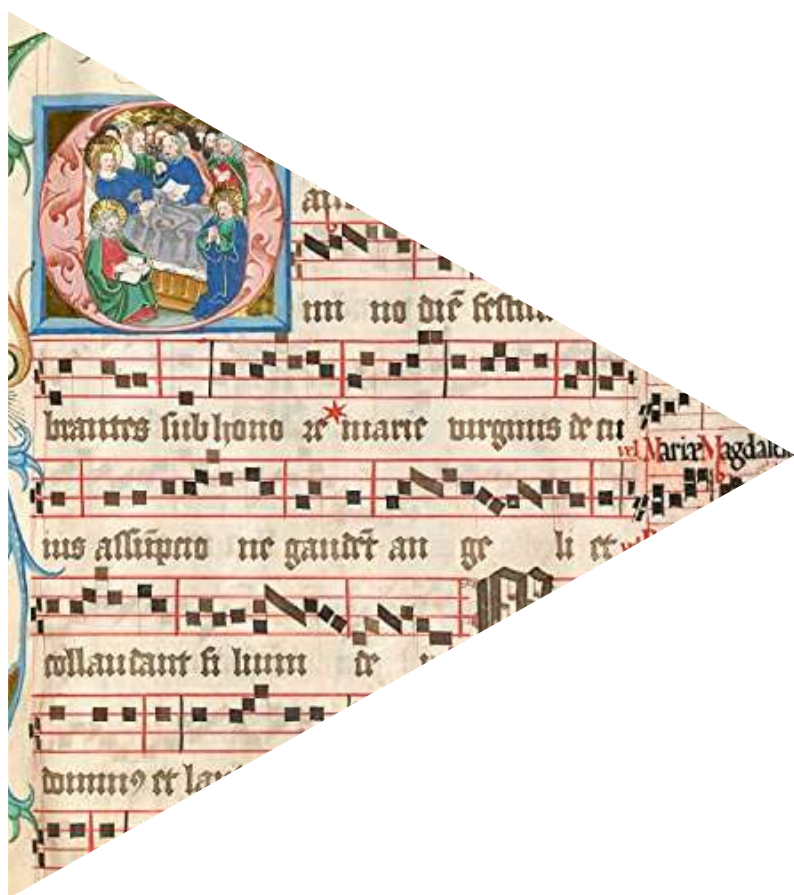 im no diē festum
brantes sub hono re marie virginis de cu
vel Mariæ Magdale
ius assūpcio ne gaudēt an ge li et
collaudant fi lium de
domin⁹ et lau